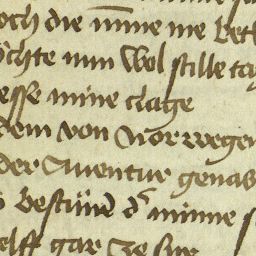 och die minne me
ochte nun wol stille
esse mine clage
dem von Norwegen
der Auentur genas
bestuͤnd dͬ minne
elff gar ze sur